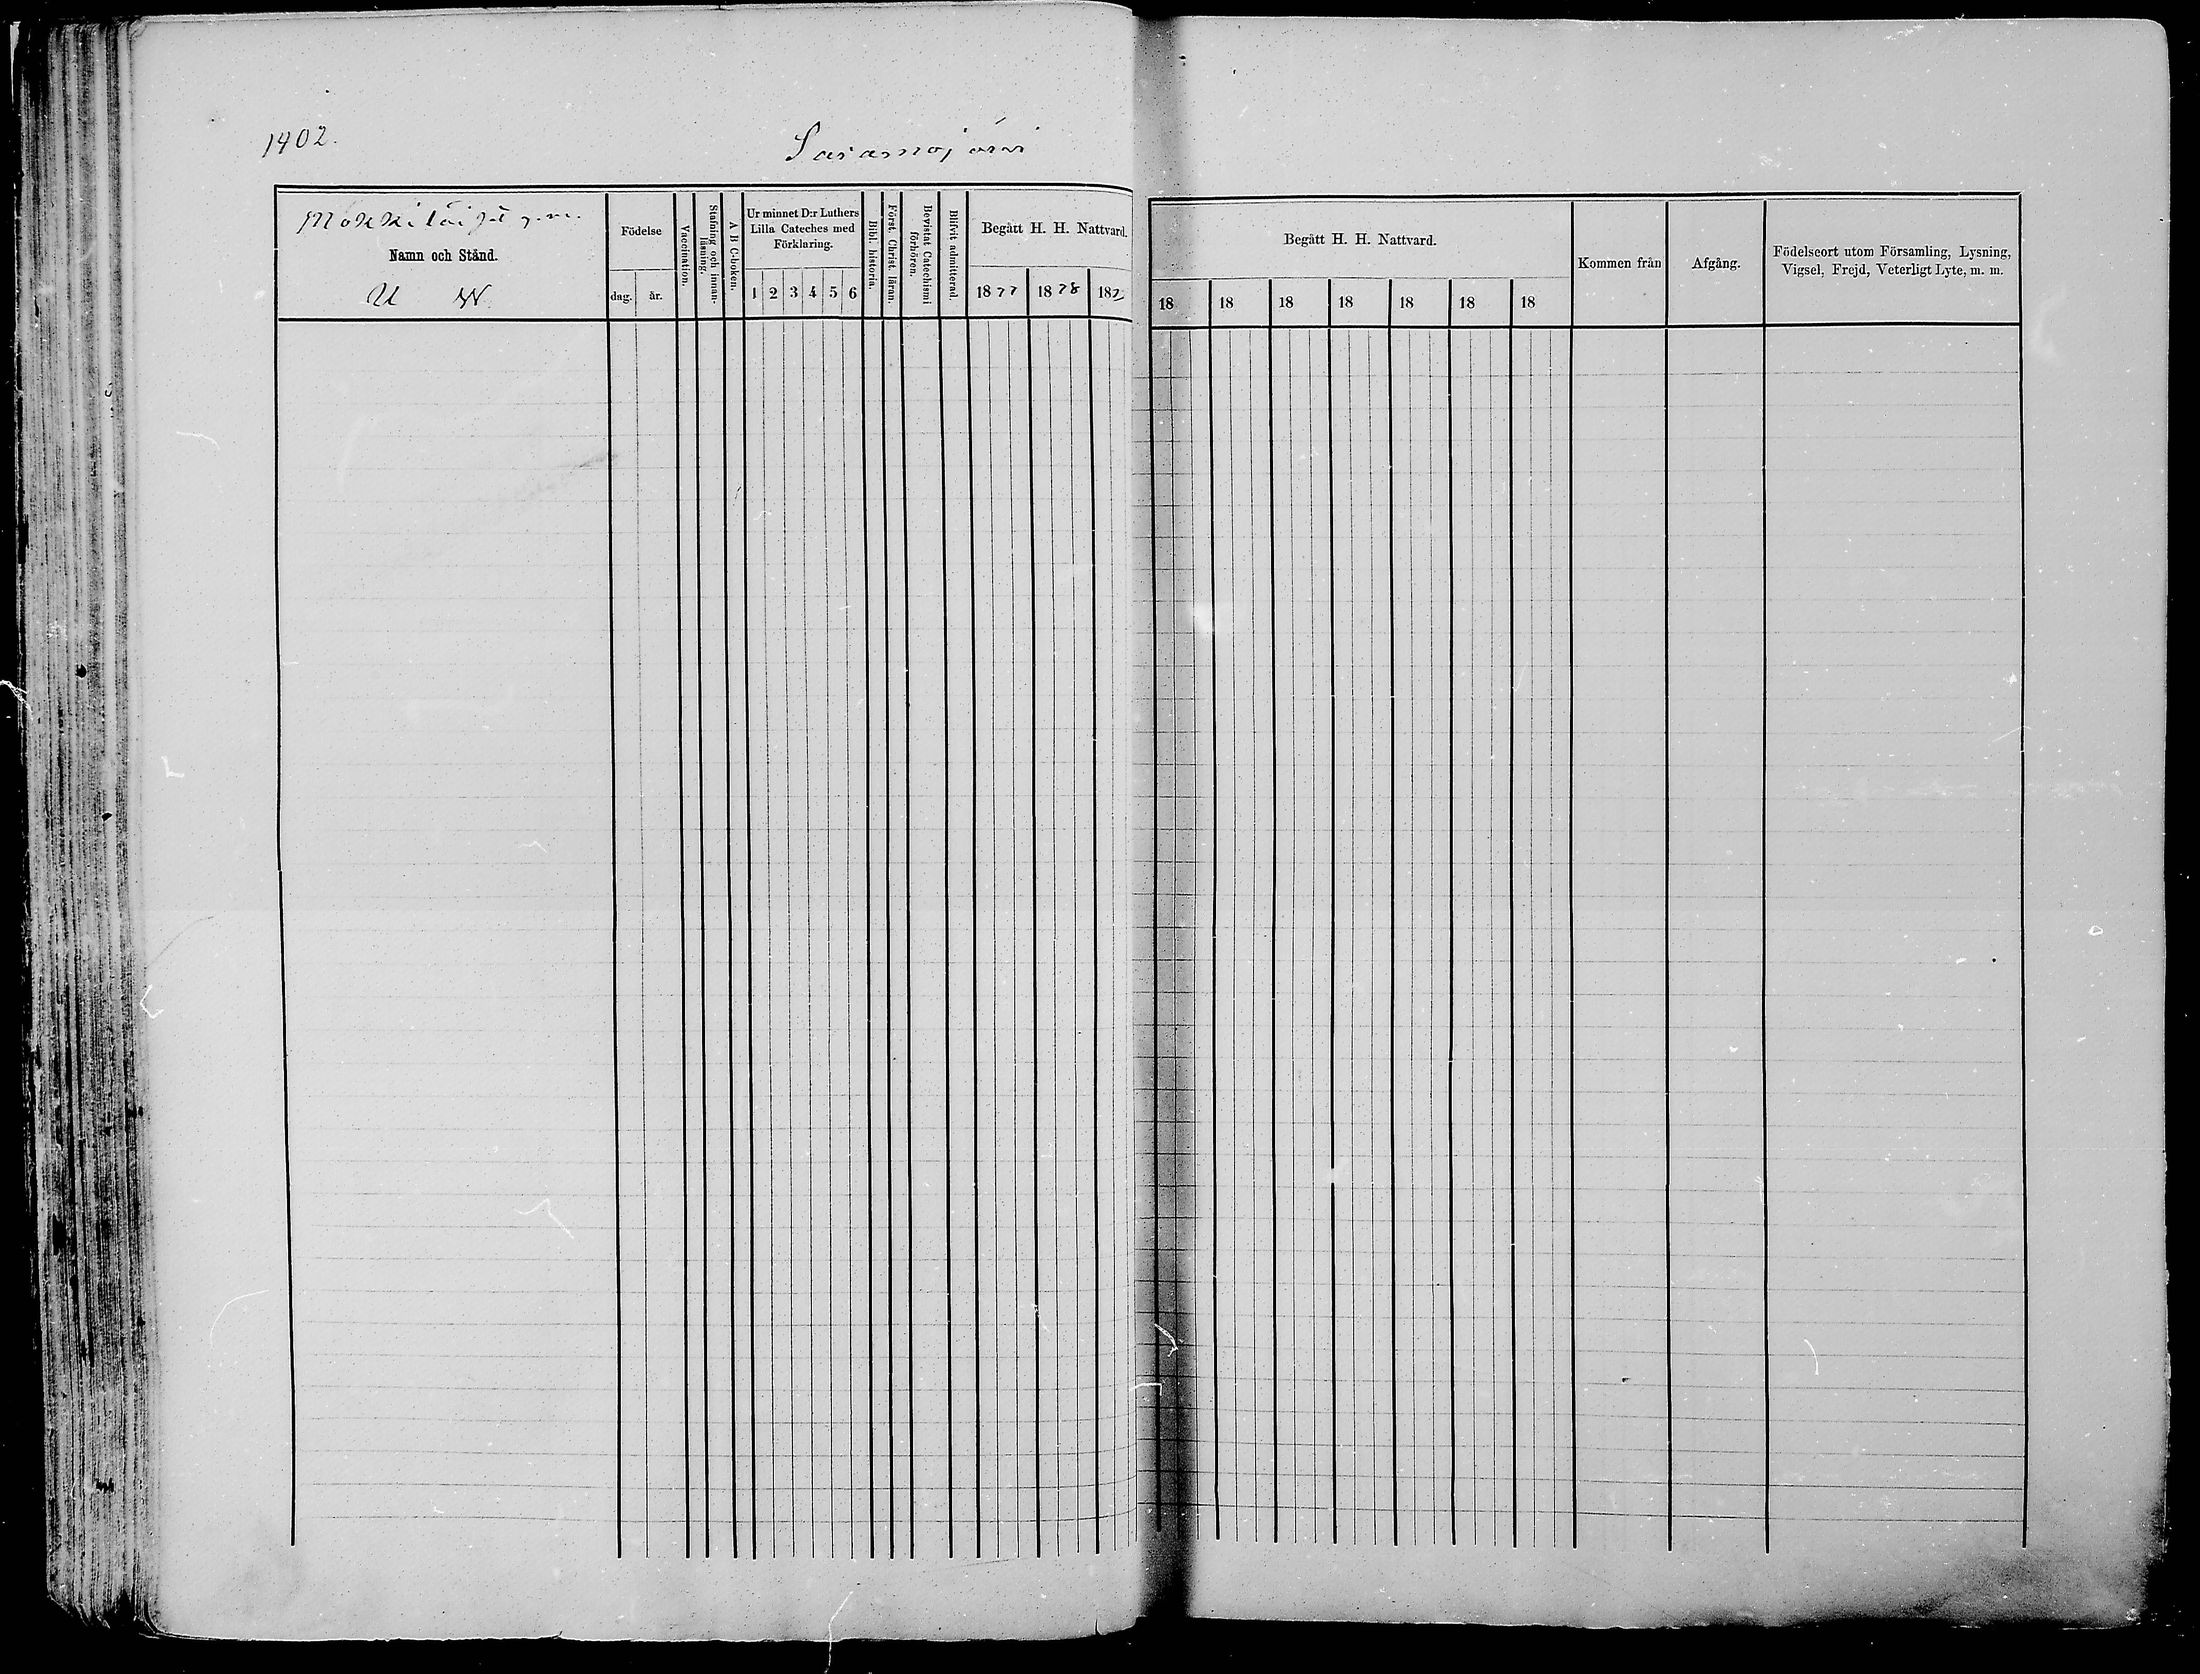 1402.
Saramojärvi
Mökkiläiset
Namn och Stånd.
U W
Födelse
dag. år.
Vaccination.
Stafning och innan-läsning.
A B C-boken.
Ur minnet D:r Luthers
Lilla Cateches med
Förklaring.
1 2 3 4 5 6
Bibl. historia.
Först. Christ. läran.
Bevistat Catechismi
förhören.
Blifvit admitterad.
Begått H. H. Nattvard.
1877 1878 187
Begått H. H. Nattvard.
18 18 18 18 18 18 18
Kommen från
Afgång.
Födelseort utom Församling, Lysning,
Vigsel, Frejd, Veterligt Lyte, m. m.